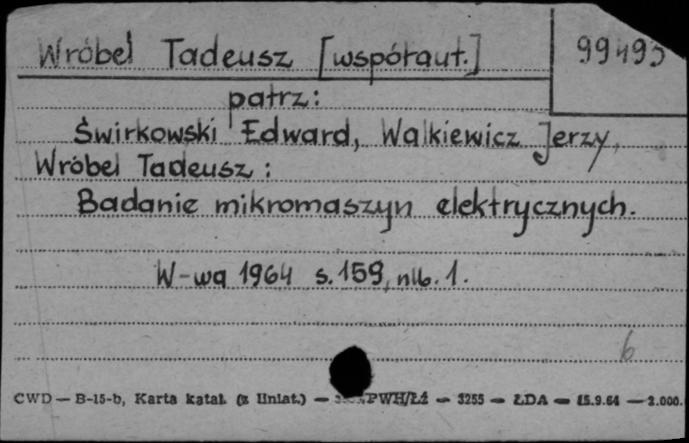 Wróbel Tadeusz [współaut.]
99493
patrz:
Świrkowski Edward, Walkiewicz Jerzy,
Wróbel Tadeusz:
Badanie mikromaszyn elektrycznych.
W-wa 1964 s. 159, nlb. 1.
6
CWD — B-15-b, Karta katal. (z liniat.) — PWH/Łź — 3255 — ŁDA — 15.9.64 — 2.000.